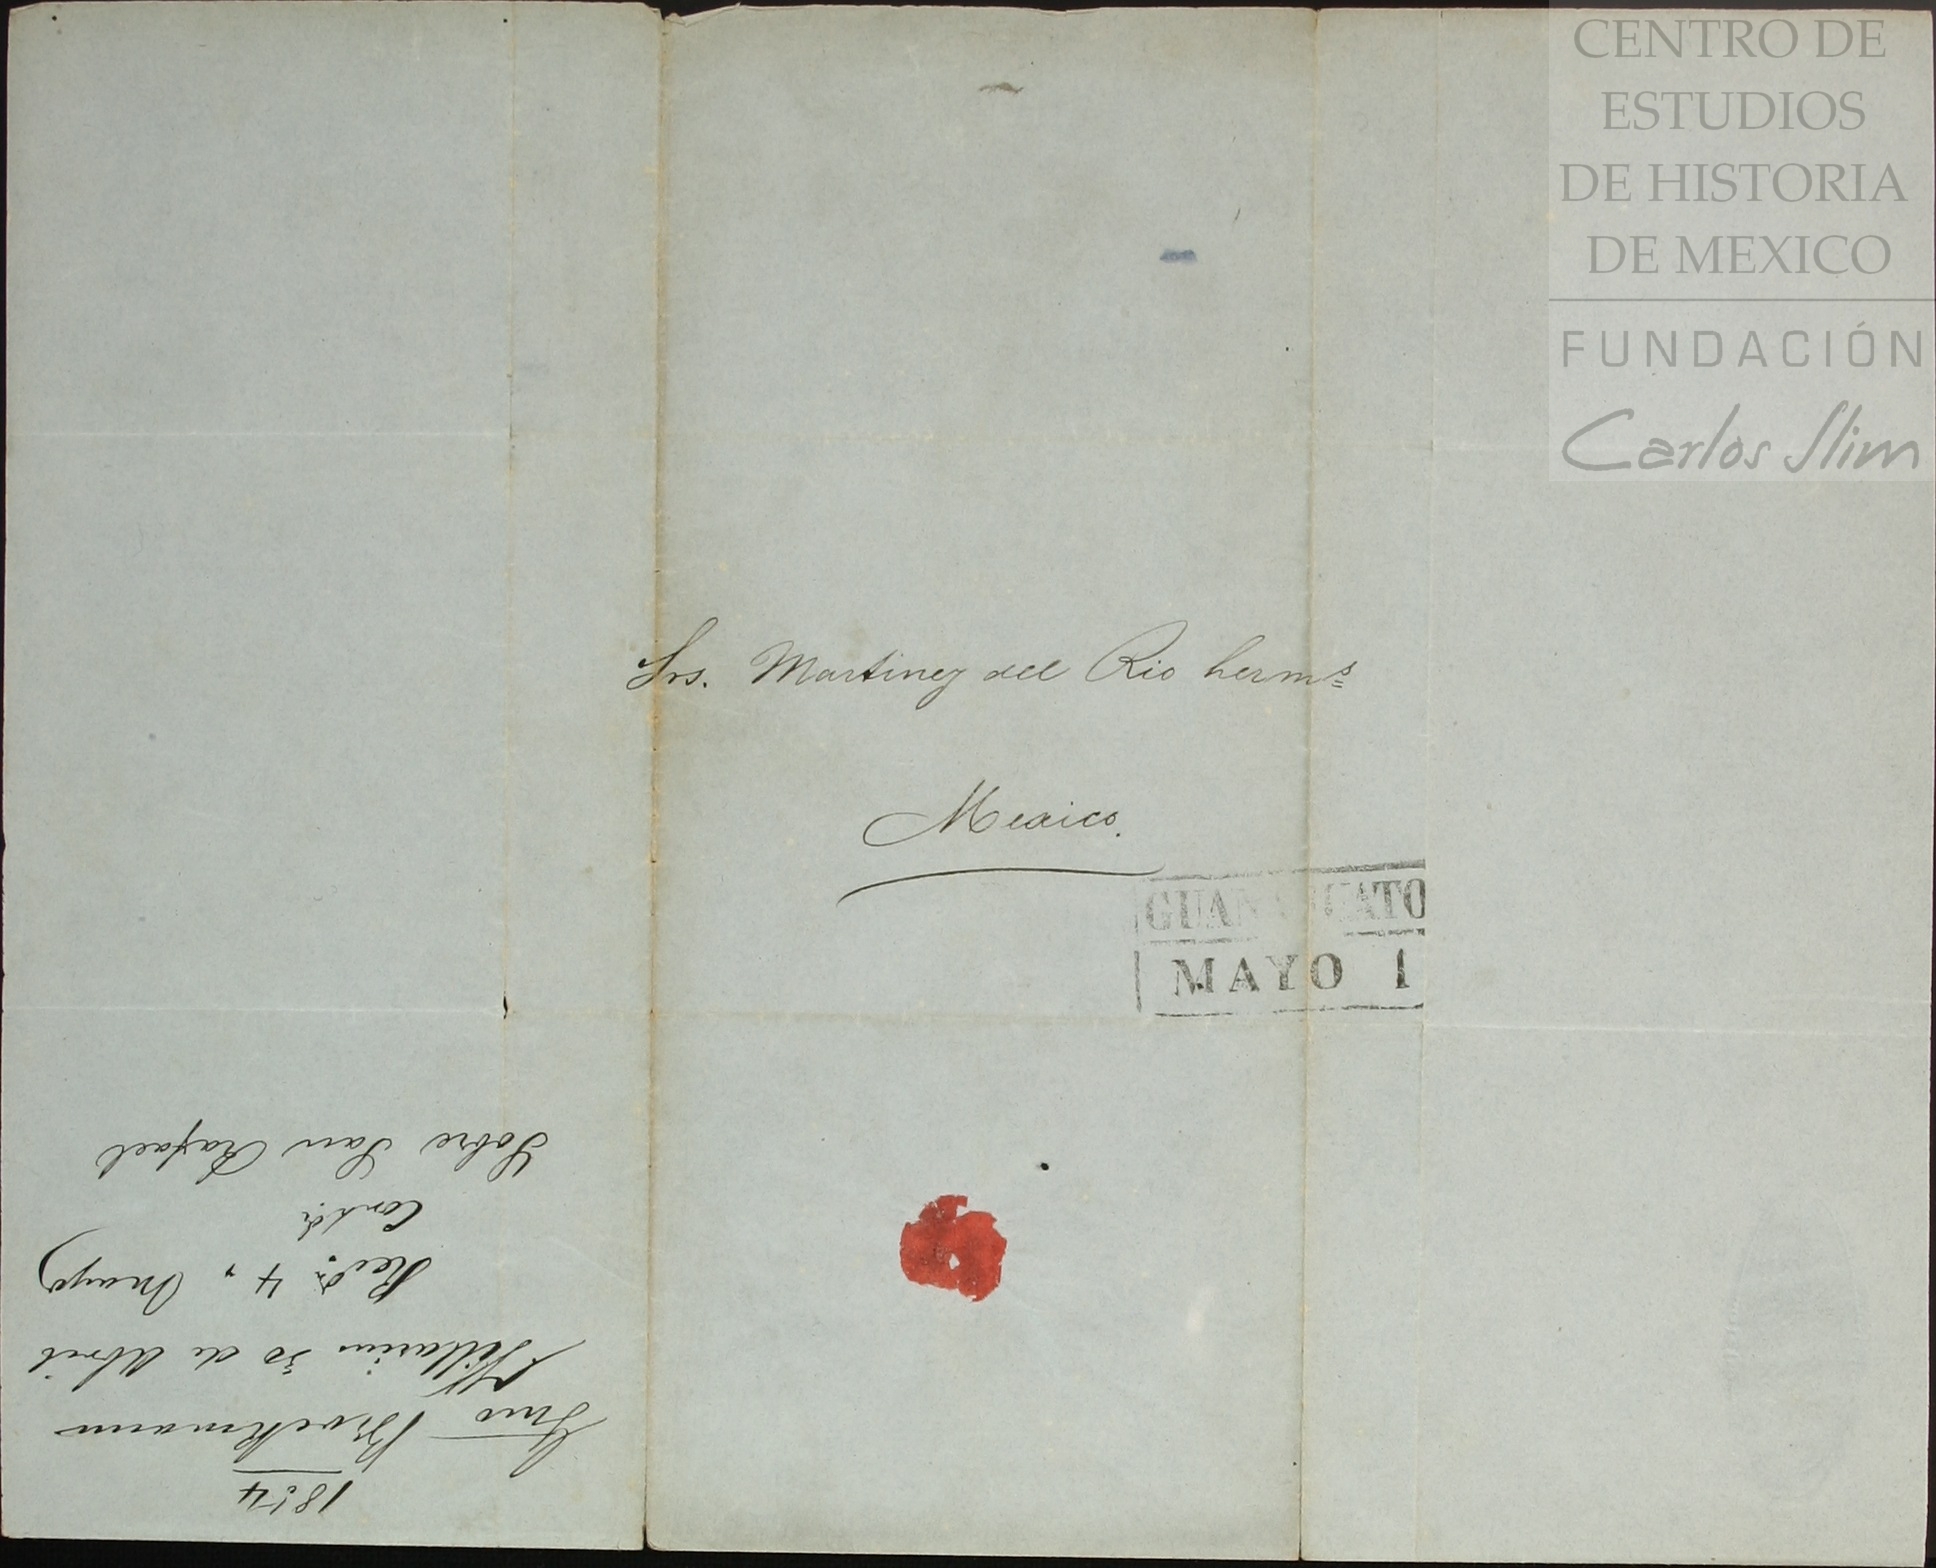 CENTRO DE
ESTUDIOS
DE HISTORIA
DE MEXICO
FUNDACIÓN
Carlos Slim
Srs. Martinez del Rio herms
Mexico.
GUANAJUATO
MAYO 1
1854
Brockmann
30 de Abril
Recd. 4 " Mayo
Contd.
Sobre San Rafael